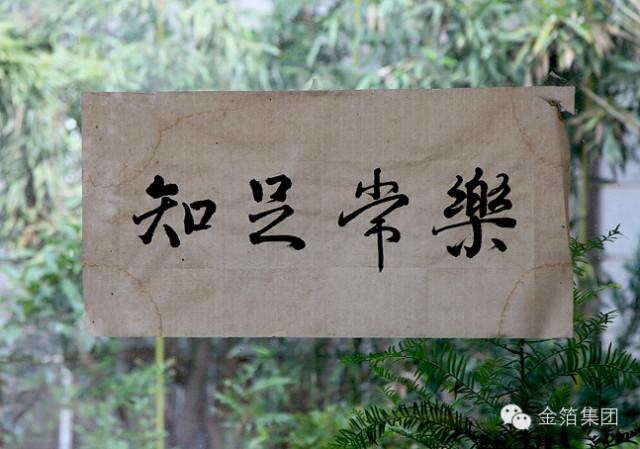 知足常樂
金箔集团